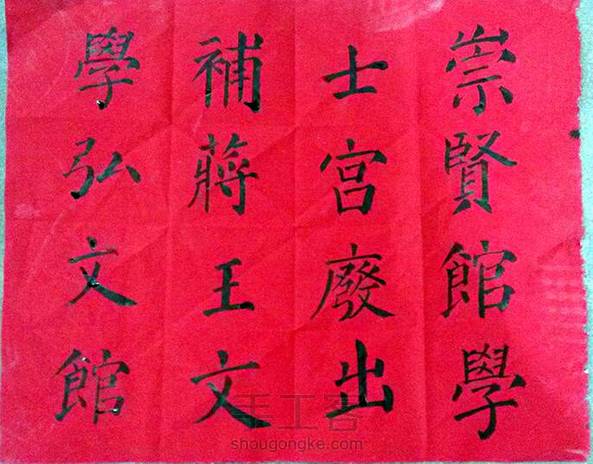 崇賢館學
士宮廢出
補蔣王文
學弘文館
手工客
shougongke.com